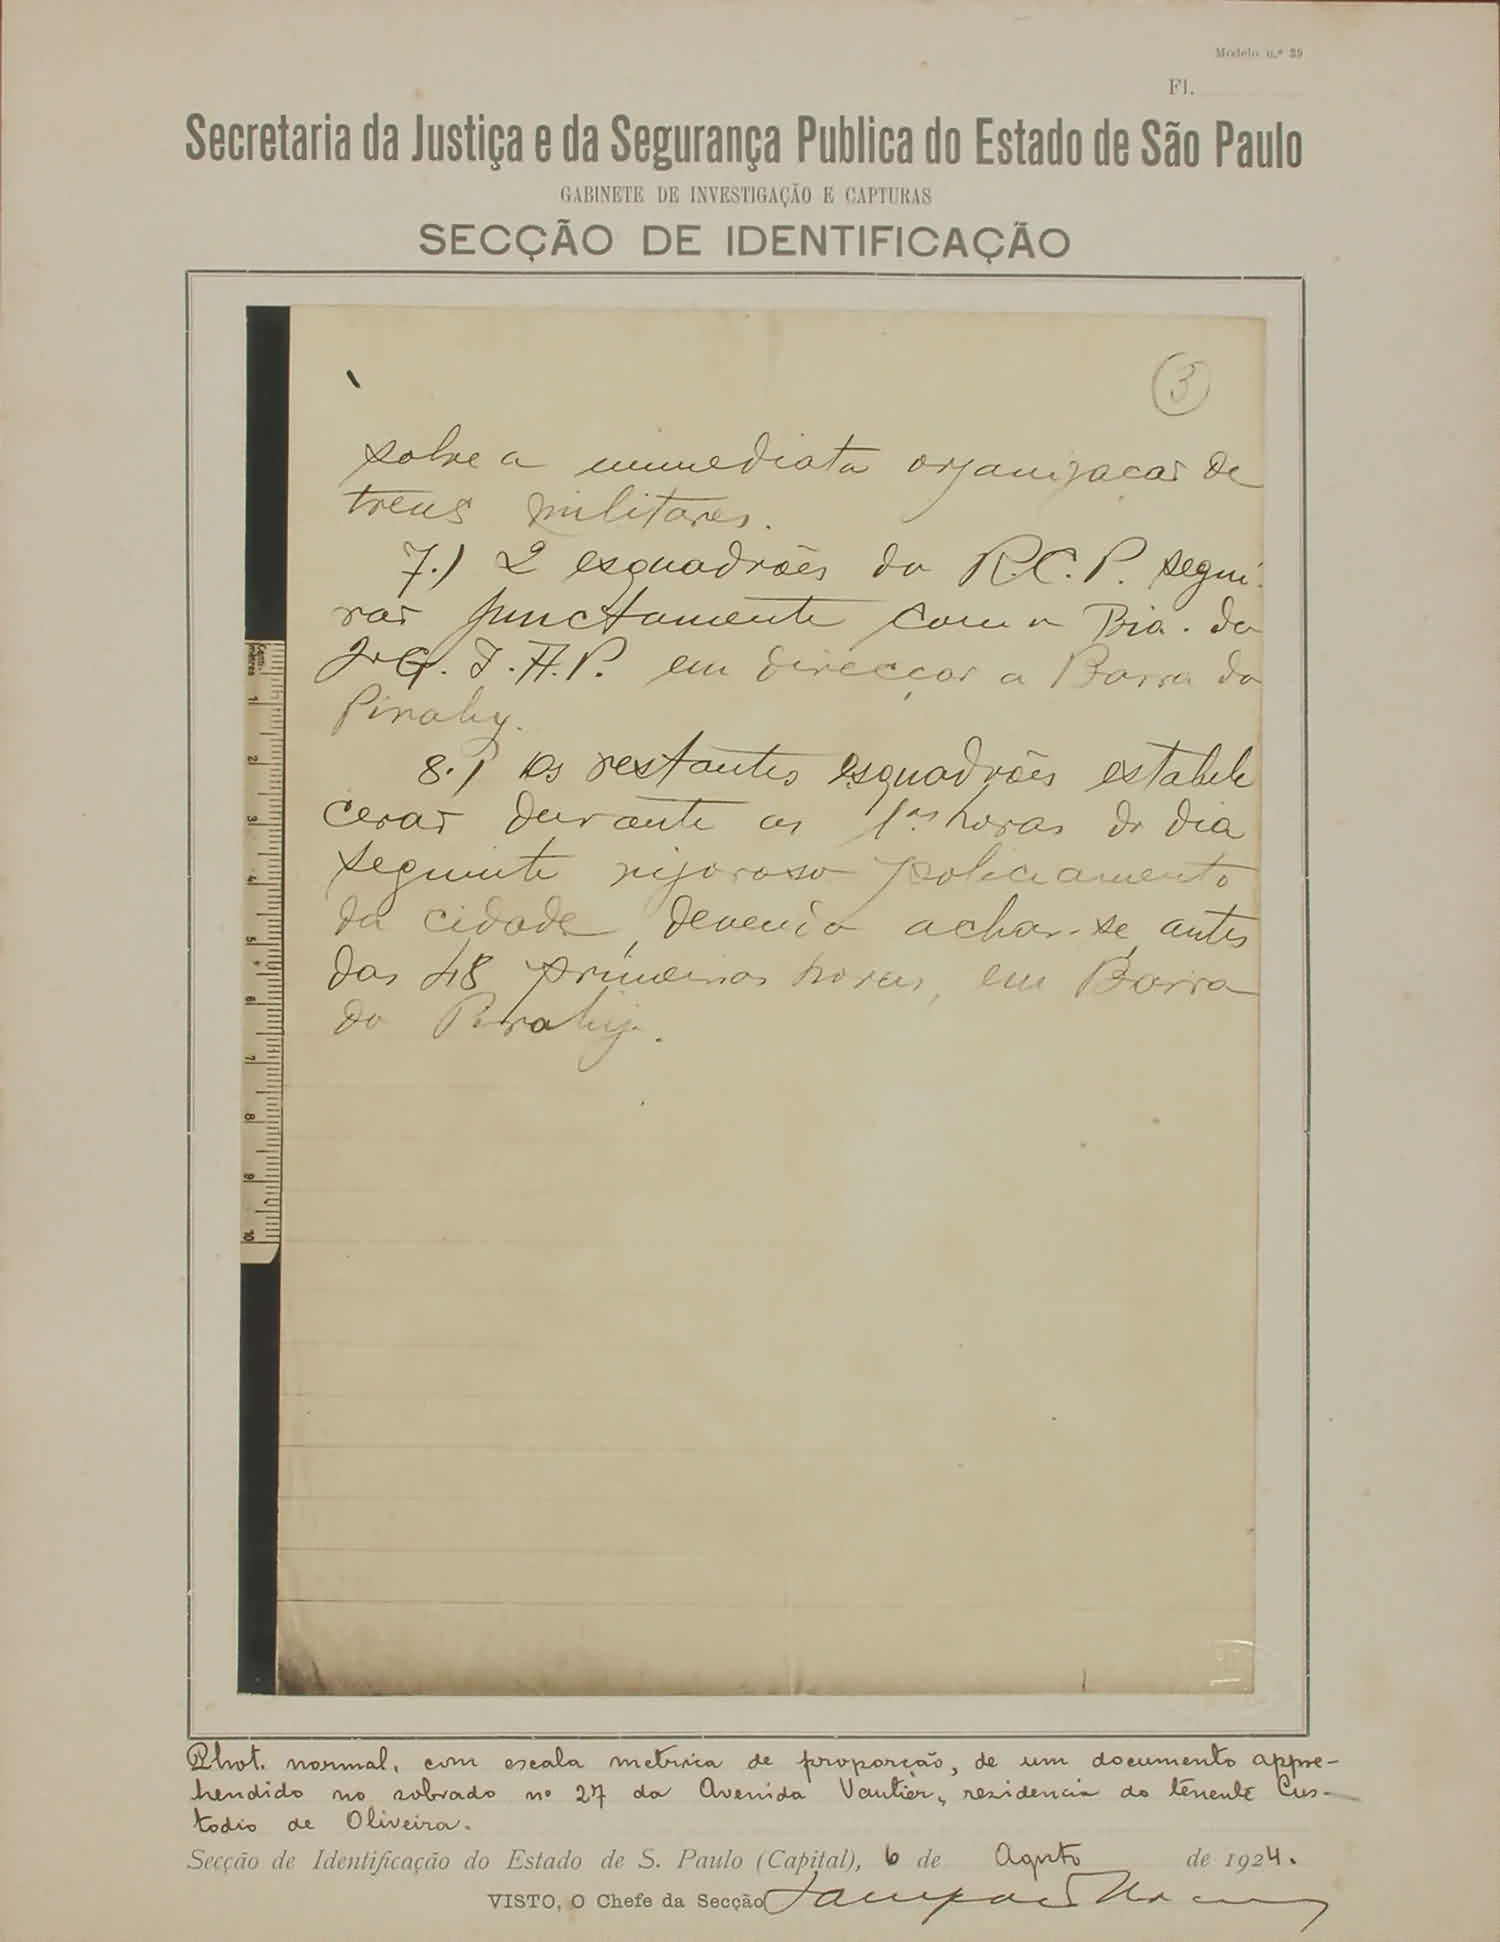 Modelo n.º 39
Fl.
Secretaria da Justiça e da Segurança Publica do Estado de São Paulo
GABINETE DE INVESTIGAÇÃO E CAPTURAS
SECÇÃO DE IDENTIFICAÇÃO
3
sobre a immediata organizacaõ de
trens militares.
7.) 2 esquadrões do R.C.P. segui-
raõ junctamente com a Bia. do
G. I. A. P. em direcçaõ a Barra do
Pirahy.
8.) Os restantes esquadrões estabele
ceraõ durante as 1.as horas do dia
seguinte rigoroso policiamento
da cidade, devendo achar-se, antes
das 48 primeiras horas, em Barra
do Pirahy.
1
2
3
4
5
6
7
8
9
10
Phot. normal, com escala metrica de proporção, de um documento appre-
hendido no sobrado nº 27 da Avenida Vautier, residencia do tenente Cus-
todio de Oliveira.
Secção de Identificação do Estado de S. Paulo (Capital), 6 de Agosto de 1924.
VISTO, O Chefe da Secção